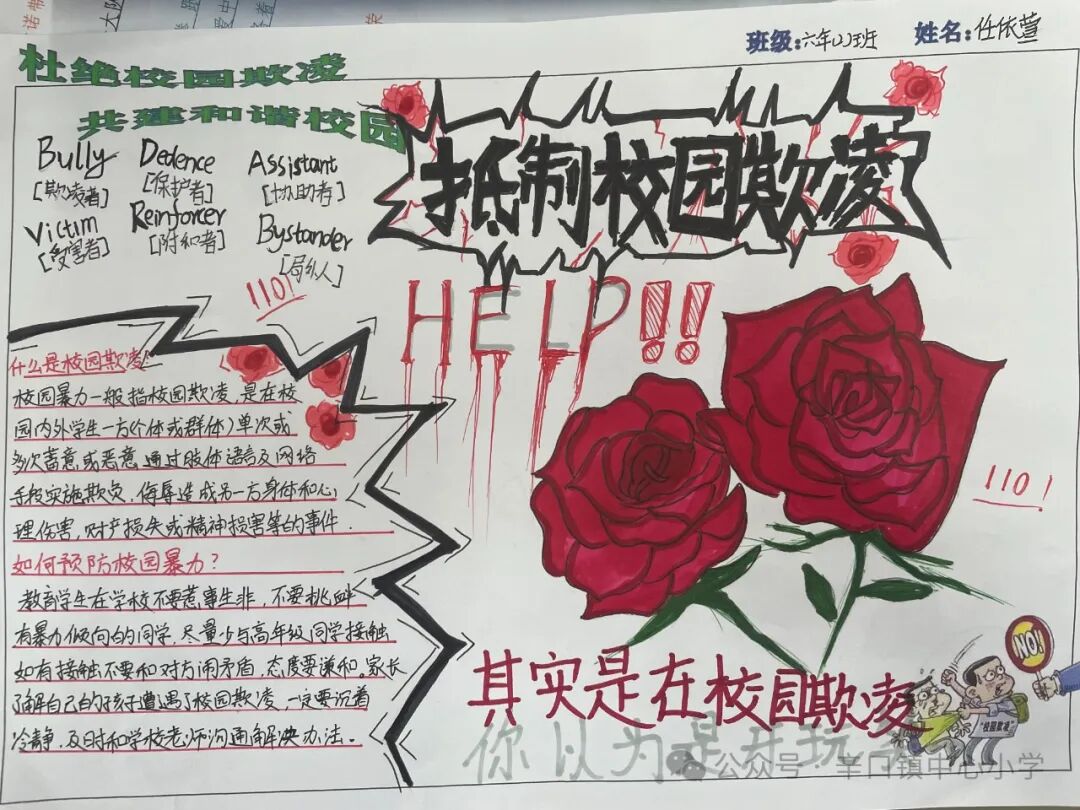 班级:六年(2)班 姓名:任依萱
杜绝校园欺凌
共建和谐校园
抵制校园欺凌
Bully Dedence Assistant
[欺凌者] [保护者] [协助者]
Victim Reinforcer Bystander
[受害者] [附和者] [局外人]
110!
HELP!!
什么是校园欺凌!
校园暴力一般指校园欺凌,是在校
园内外学生一方(个体或群体)单次或
多次蓄意或恶意通过肢体语言及网络
手段实施欺负,侮辱造成另一方身体和心
理伤害,财产损失或精神损害等的事件.
如何预防校园暴力?
教育学生在学校不要惹事生非,不要挑衅
有暴力倾向的同学.尽量少与高年级同学接触
如有接触不要和对方闹矛盾,态度要谦和.家长
了解自己的孩子遭遇了校园欺凌,一定要沉着
冷静,及时和学校老师沟通解决办法。
110!
NO!
"校园欺凌"
其实是在校园欺凌
你以为是在玩
公众号·羊口镇中心小学